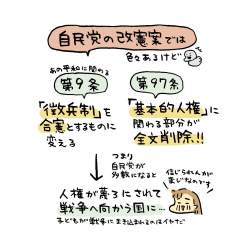 自民党の改憲案では
色々あるけど
あの平和に関わる
第9条
第97条
「徴兵制」を
合憲とするものに
変える
「基本的人権」に
関わる部分が
全文削除!!
つまり
自民党が
多数になると
信じられんが
まじなのです
人権が蔑ろにされて
戦争へ向かう国に…
子どもが戦争にまき込まれるのはイヤだ